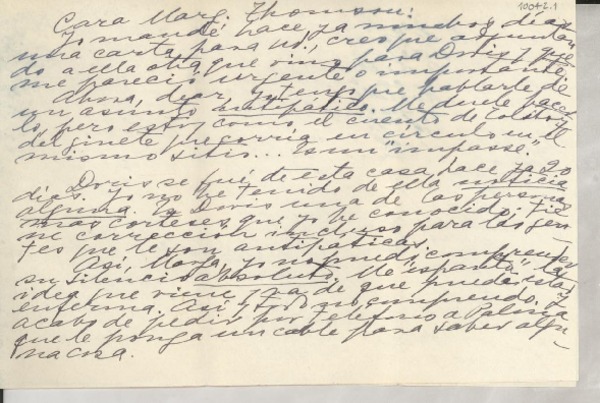 10042.1
Cara Marg. Thomson:
Yo mandé hace ya muchos días
una carta para Ud., creo que adjuntan-
do a ella otra que vino para Doris y que
me pareció urgente o importante.
Ahora, dear, yo tengo que hablarle de
un asunto antipático. Me duele hacer-
lo, pero estoy como el cuento de Tolstoy
del ginete que corría en círculo en el
mismo sitio... Es un "impasse".
Doris se fué de esta casa hace ya 20
días. Yo no he tenido de ella noticia
alguna. Es Doris una de las personas
más corteses que yo he conocido; tie-
ne corrección incluso para las gen-
tes que le son antipáticas.
Así, Marg., yo no puedo comprender
su silencio absoluto. Me espanta la
idea que viene y va de que puede estar
enferma. Así, no comprendo. Y
acabo de pedir por teléfono a Palma
que le ponga un cable para saber algu-
na cosa.